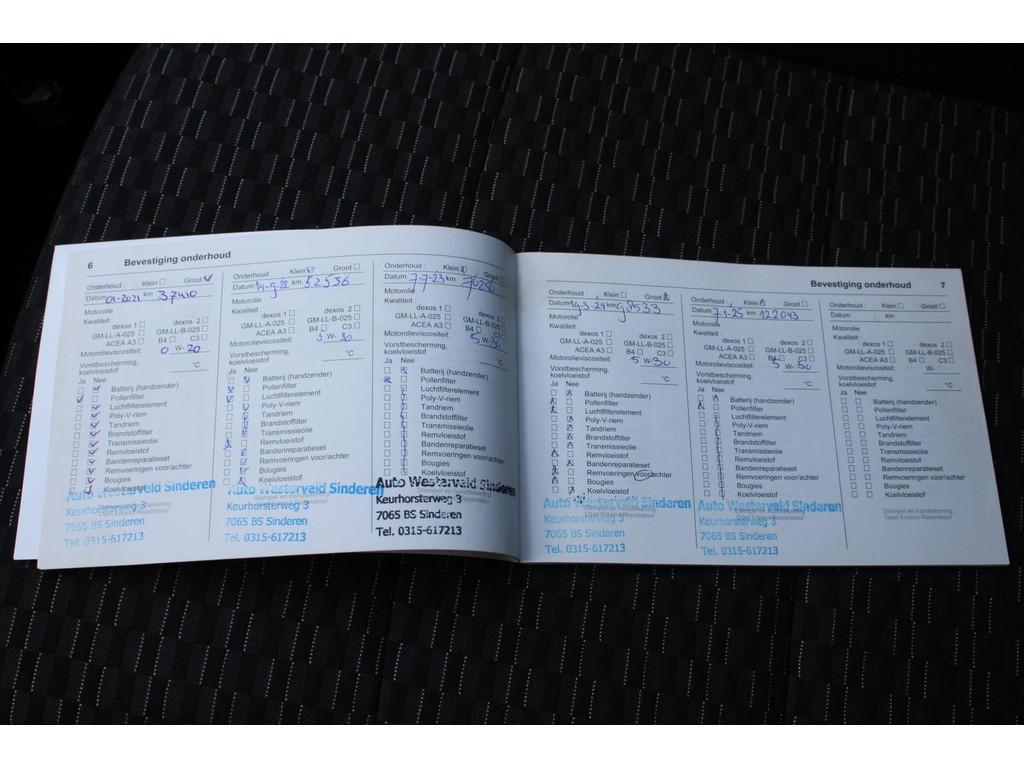 6 Bevestiging onderhoud
Onderhoud : Klein Groot
Datum 04-2021 km 37410
Motorolie
Kwaliteit
dexos 1 dexos 2
GM-LL-A-025 GM-LL-B-025
ACEA A3 B4 C3
Motorolieviscositeit: 0 W- 20
Vorstbescherming, °C
koelvloeistof
Ja Nee
Batterij (handzender)
Pollenfilter
Luchtfilterelement
Poly-V-riem
Tandriem
Brandstoffilter
Transmissieolie
Remvloeistof
Bandenreparatieset
Remvoeringen voor/achter
Bougies
Koelvloeistof
Auto Westerveld Sinderen
Keurhorsterweg 3
7065 BS Sinderen
Tel. 0315-617213
Onderhoud : Klein Groot
Datum 14-9-22 km 52556
Motorolie
Kwaliteit
dexos 1 dexos 2
GM-LL-A-025 GM-LL-B-025
ACEA A3 B4 C3
Motorolieviscositeit: 5 W- 30
Vorstbescherming, °C
koelvloeistof
Ja Nee
Batterij (handzender)
Pollenfilter
Luchtfilterelement
Poly-V-riem
Tandriem
Brandstoffilter
Transmissieolie
Remvloeistof
Bandenreparatieset
Remvoeringen voor/achter
Bougies
Koelvloeistof
Auto Westerveld Sinderen
Keurhorsterweg 3
7065 BS Sinderen
Tel. 0315-617213
Onderhoud : Klein Groot
Datum 7-7-23 km 76250
Motorolie
Kwaliteit
dexos 1 dexos 2
GM-LL-A-025 GM-LL-B-025
ACEA A3 B4 C3
Motorolieviscositeit: 5 W- 30
Vorstbescherming, °C
koelvloeistof
Ja Nee
Batterij (handzender)
Pollenfilter
Luchtfilterelement
Poly-V-riem
Tandriem
Brandstoffilter
Transmissieolie
Remvloeistof
Bandenreparatieset
Remvoeringen voor/achter
Bougies
Koelvloeistof
Auto Westerveld Sinderen
Keurhorsterweg 3
7065 BS Sinderen
Tel. 0315-617213
Bevestiging onderhoud 7
Onderhoud : Klein Groot
Datum 14-3-24 km 98533
Motorolie
Kwaliteit
dexos 1 dexos 2
GM-LL-A-025 GM-LL-B-025
ACEA A3 B4 C3
Motorolieviscositeit: 5 W- 30
Vorstbescherming, °C
koelvloeistof
Ja Nee
Batterij (handzender)
Pollenfilter
Luchtfilterelement
Poly-V-riem
Tandriem
Brandstoffilter
Transmissieolie
Remvloeistof
Bandenreparatieset
Remvoeringen voor/achter
Bougies
Koelvloeistof
Auto Westerveld Sinderen
Keurhorsterweg 3
7065 BS Sinderen
Tel. 0315-617213
Onderhoud : Klein Groot
Datum 7-1-25 km 122043
Motorolie
Kwaliteit
dexos 1 dexos 2
GM-LL-A-025 GM-LL-B-025
ACEA A3 B4 C3
Motorolieviscositeit: 5 W- 30
Vorstbescherming, °C
koelvloeistof
Ja Nee
Batterij (handzender)
Pollenfilter
Luchtfilterelement
Poly-V-riem
Tandriem
Brandstoffilter
Transmissieolie
Remvloeistof
Bandenreparatieset
Remvoeringen voor/achter
Bougies
Koelvloeistof
Auto Westerveld Sinderen
Keurhorsterweg 3
7065 BS Sinderen
Tel. 0315-617213
Onderhoud : Klein Groot
Datum km
Motorolie
Kwaliteit
dexos 1 dexos 2
GM-LL-A-025 GM-LL-B-025
ACEA A3 B4 C3
Motorolieviscositeit: W-
Vorstbescherming, °C
koelvloeistof
Ja Nee
Batterij (handzender)
Pollenfilter
Luchtfilterelement
Poly-V-riem
Tandriem
Brandstoffilter
Transmissieolie
Remvloeistof
Bandenreparatieset
Remvoeringen voor/achter
Bougies
Koelvloeistof
Stempel en handtekening
Opel Erkend Reparateur